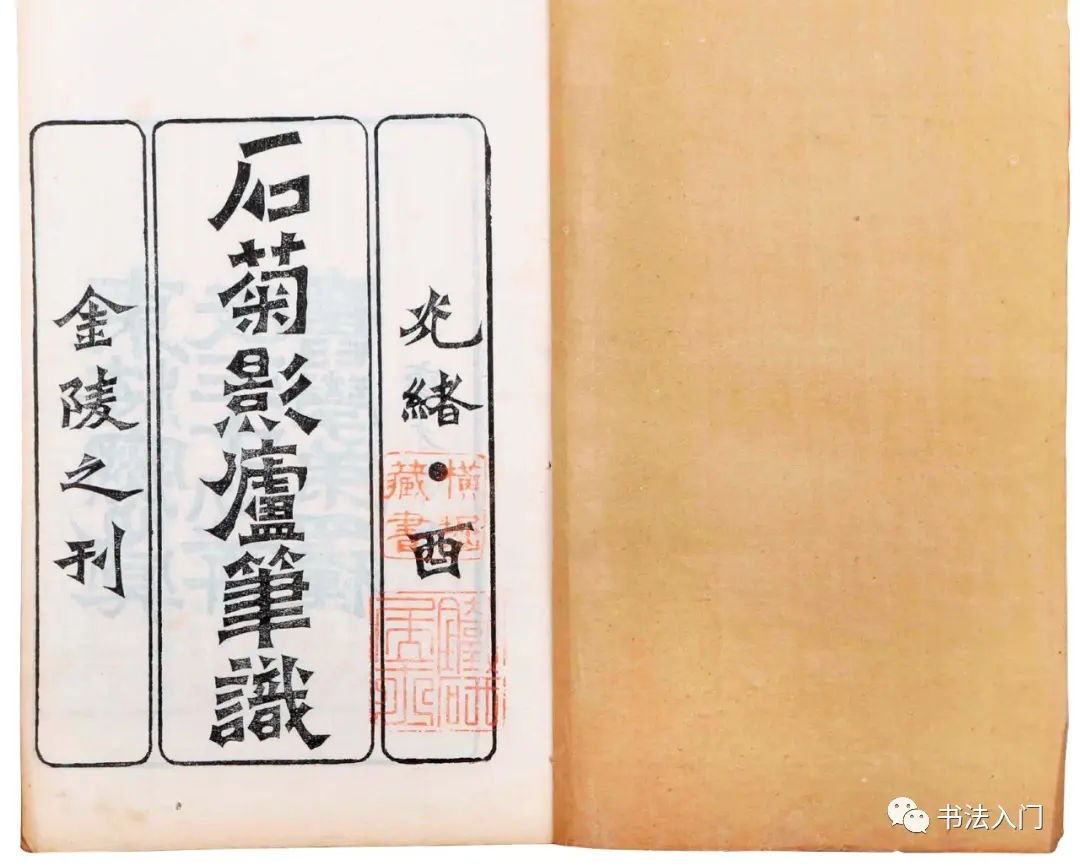 光緒●酉
石菊影廬筆識
金陵之刊
藏書
书法入门